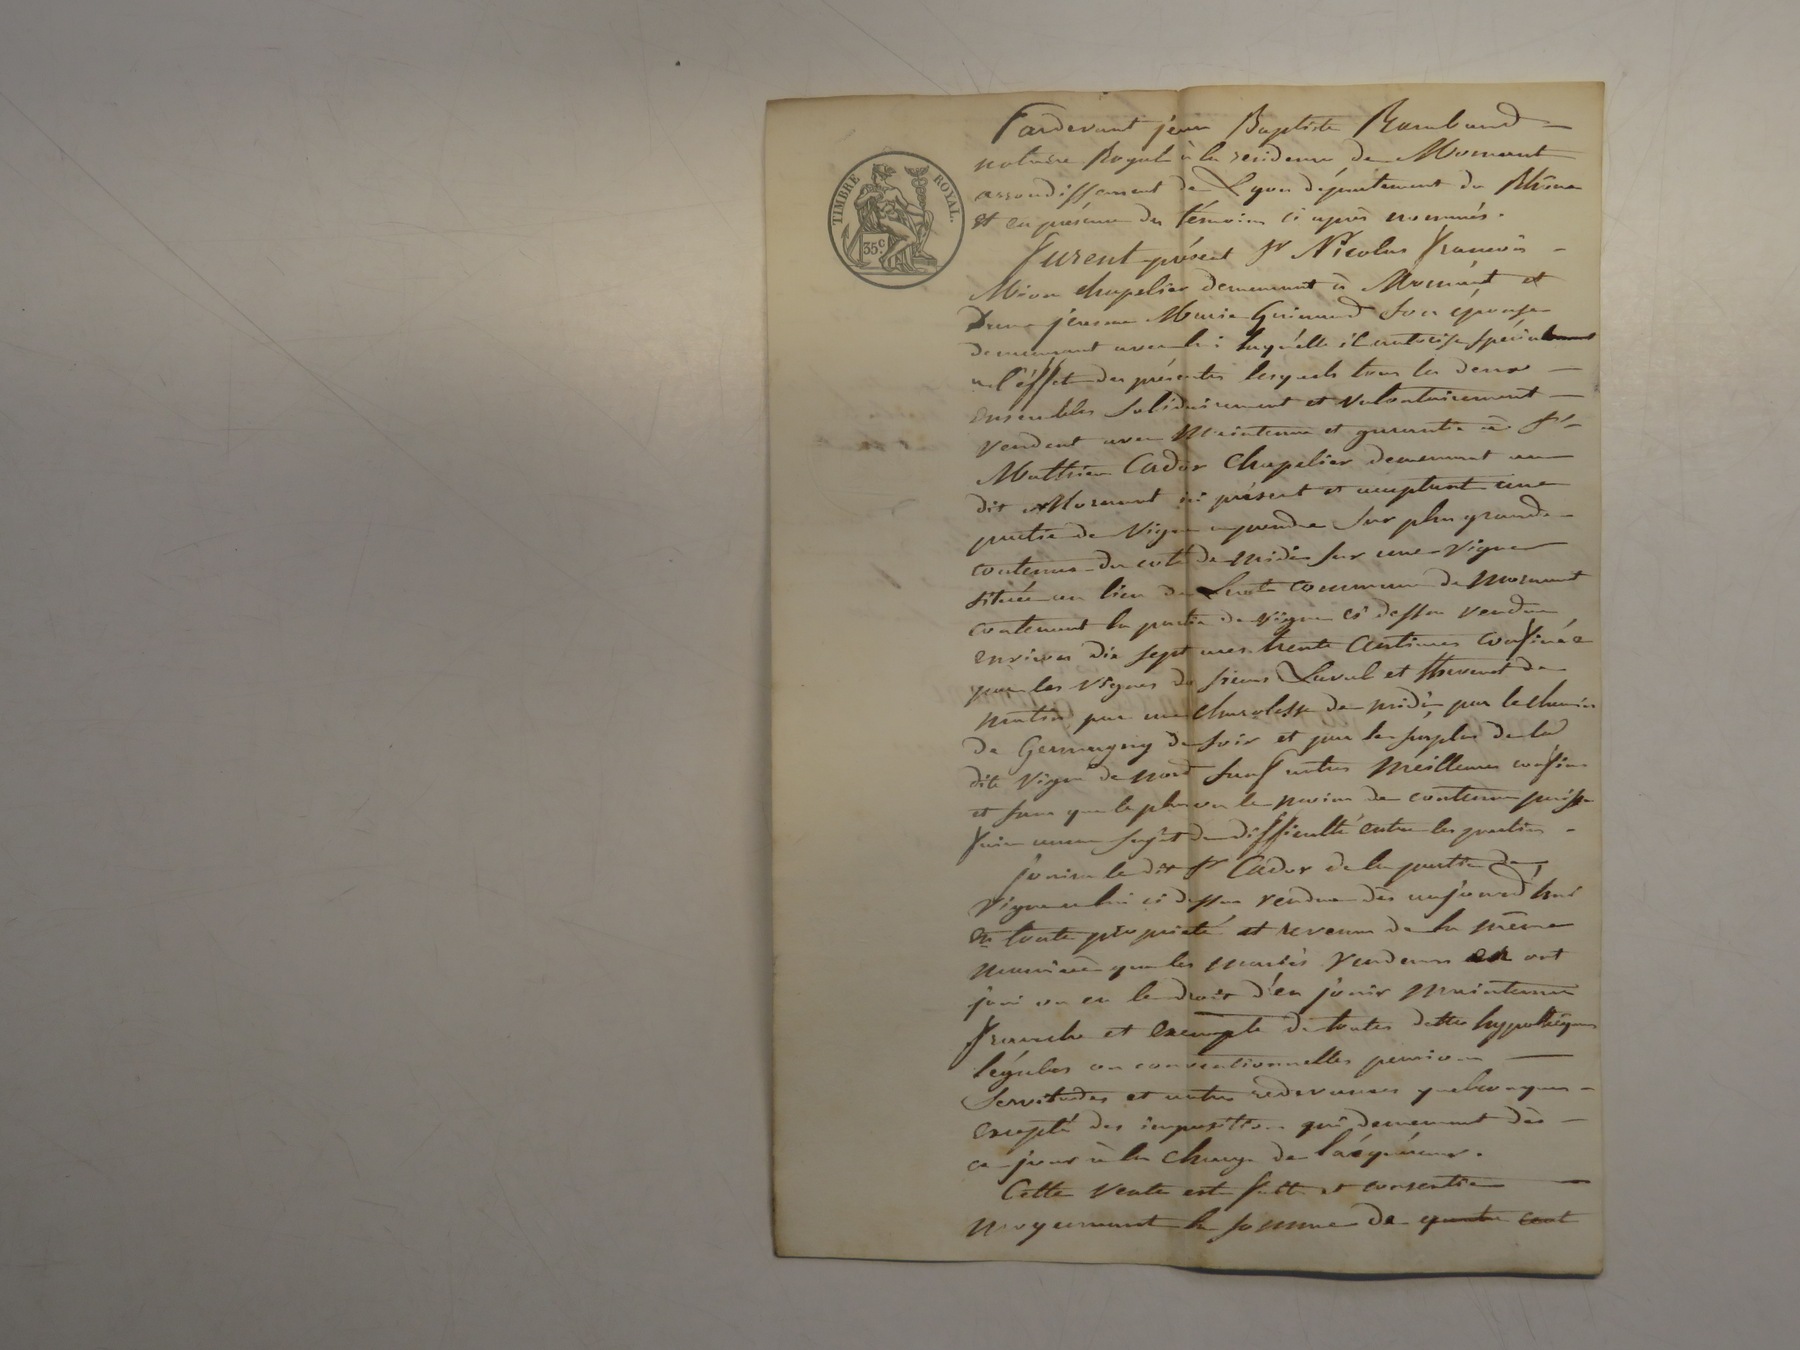 TIMBRE ROYAL.
35c
Pardevant jean Baptiste Rambaud
notaire Royal à la residence de Mornant
arrondissement de Lyon département du Rhône
et en présence des témoins ci après nommés.
Furent présent Sr Nicolas François
chapelier demeurant à Mornant et
Dame jeanne Marie Guinand son épouse
demeurant avec lui laquelle il autorise spécialement
a l'éffet des présentes lesquels tous les deux
ensembles solidairement et volontairement
vendent avec Maintenue et garantie à Sr
Mathieu Cador Chapelier demeurant au
dit Mornant ici présent et acceptant une
partie de Vigne a prendre sur plus grande
contenue du coté de midi sur une Vigne
située au lieu de commune de Mornant
contenant la partie de Vigne ci dessus vendue
environ dix sept ares trente Centiares confinée
par les Vignes des sieurs Laval et Thevenet de
matin par une de midi, par le chemin
de Germagny de soir et par le surplus de la
dite Vigne de nord sauf autres Meilleures confins
et sans que le plus ou le moins de contenue puisse
faire aucun sujet de difficulté entre les parties
jouira le dit Sr Cador de la partie de
Vigne a lui ci dessus vendue dès aujourd'hui
en toute propriété et revenu de la même
manière que les mariés Vendeurs en ont
joui ou eu le droit d'en jouir Maintenue
franche et exempte de toutes dettes hypothèques
légales ou conventionnelles pensions
Servitudes et autres redevances quelconques
excepté des imposition qui demeurent dès
ce jour à la charge de l'acquéreur.
Cette Vente est faite et consentie
moyennant la somme de quatre cent